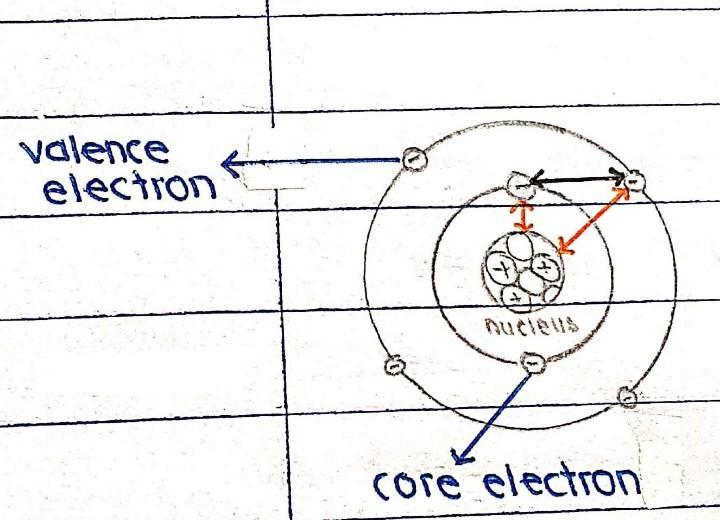 valence
electron
nucleus
core electron